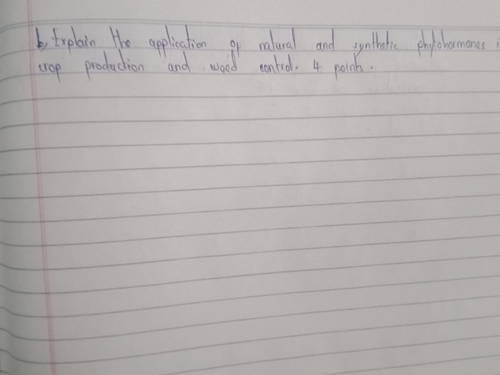 b, Explain the application of natural and synthetic phytohormones i
crop production and weed control. 4 points.